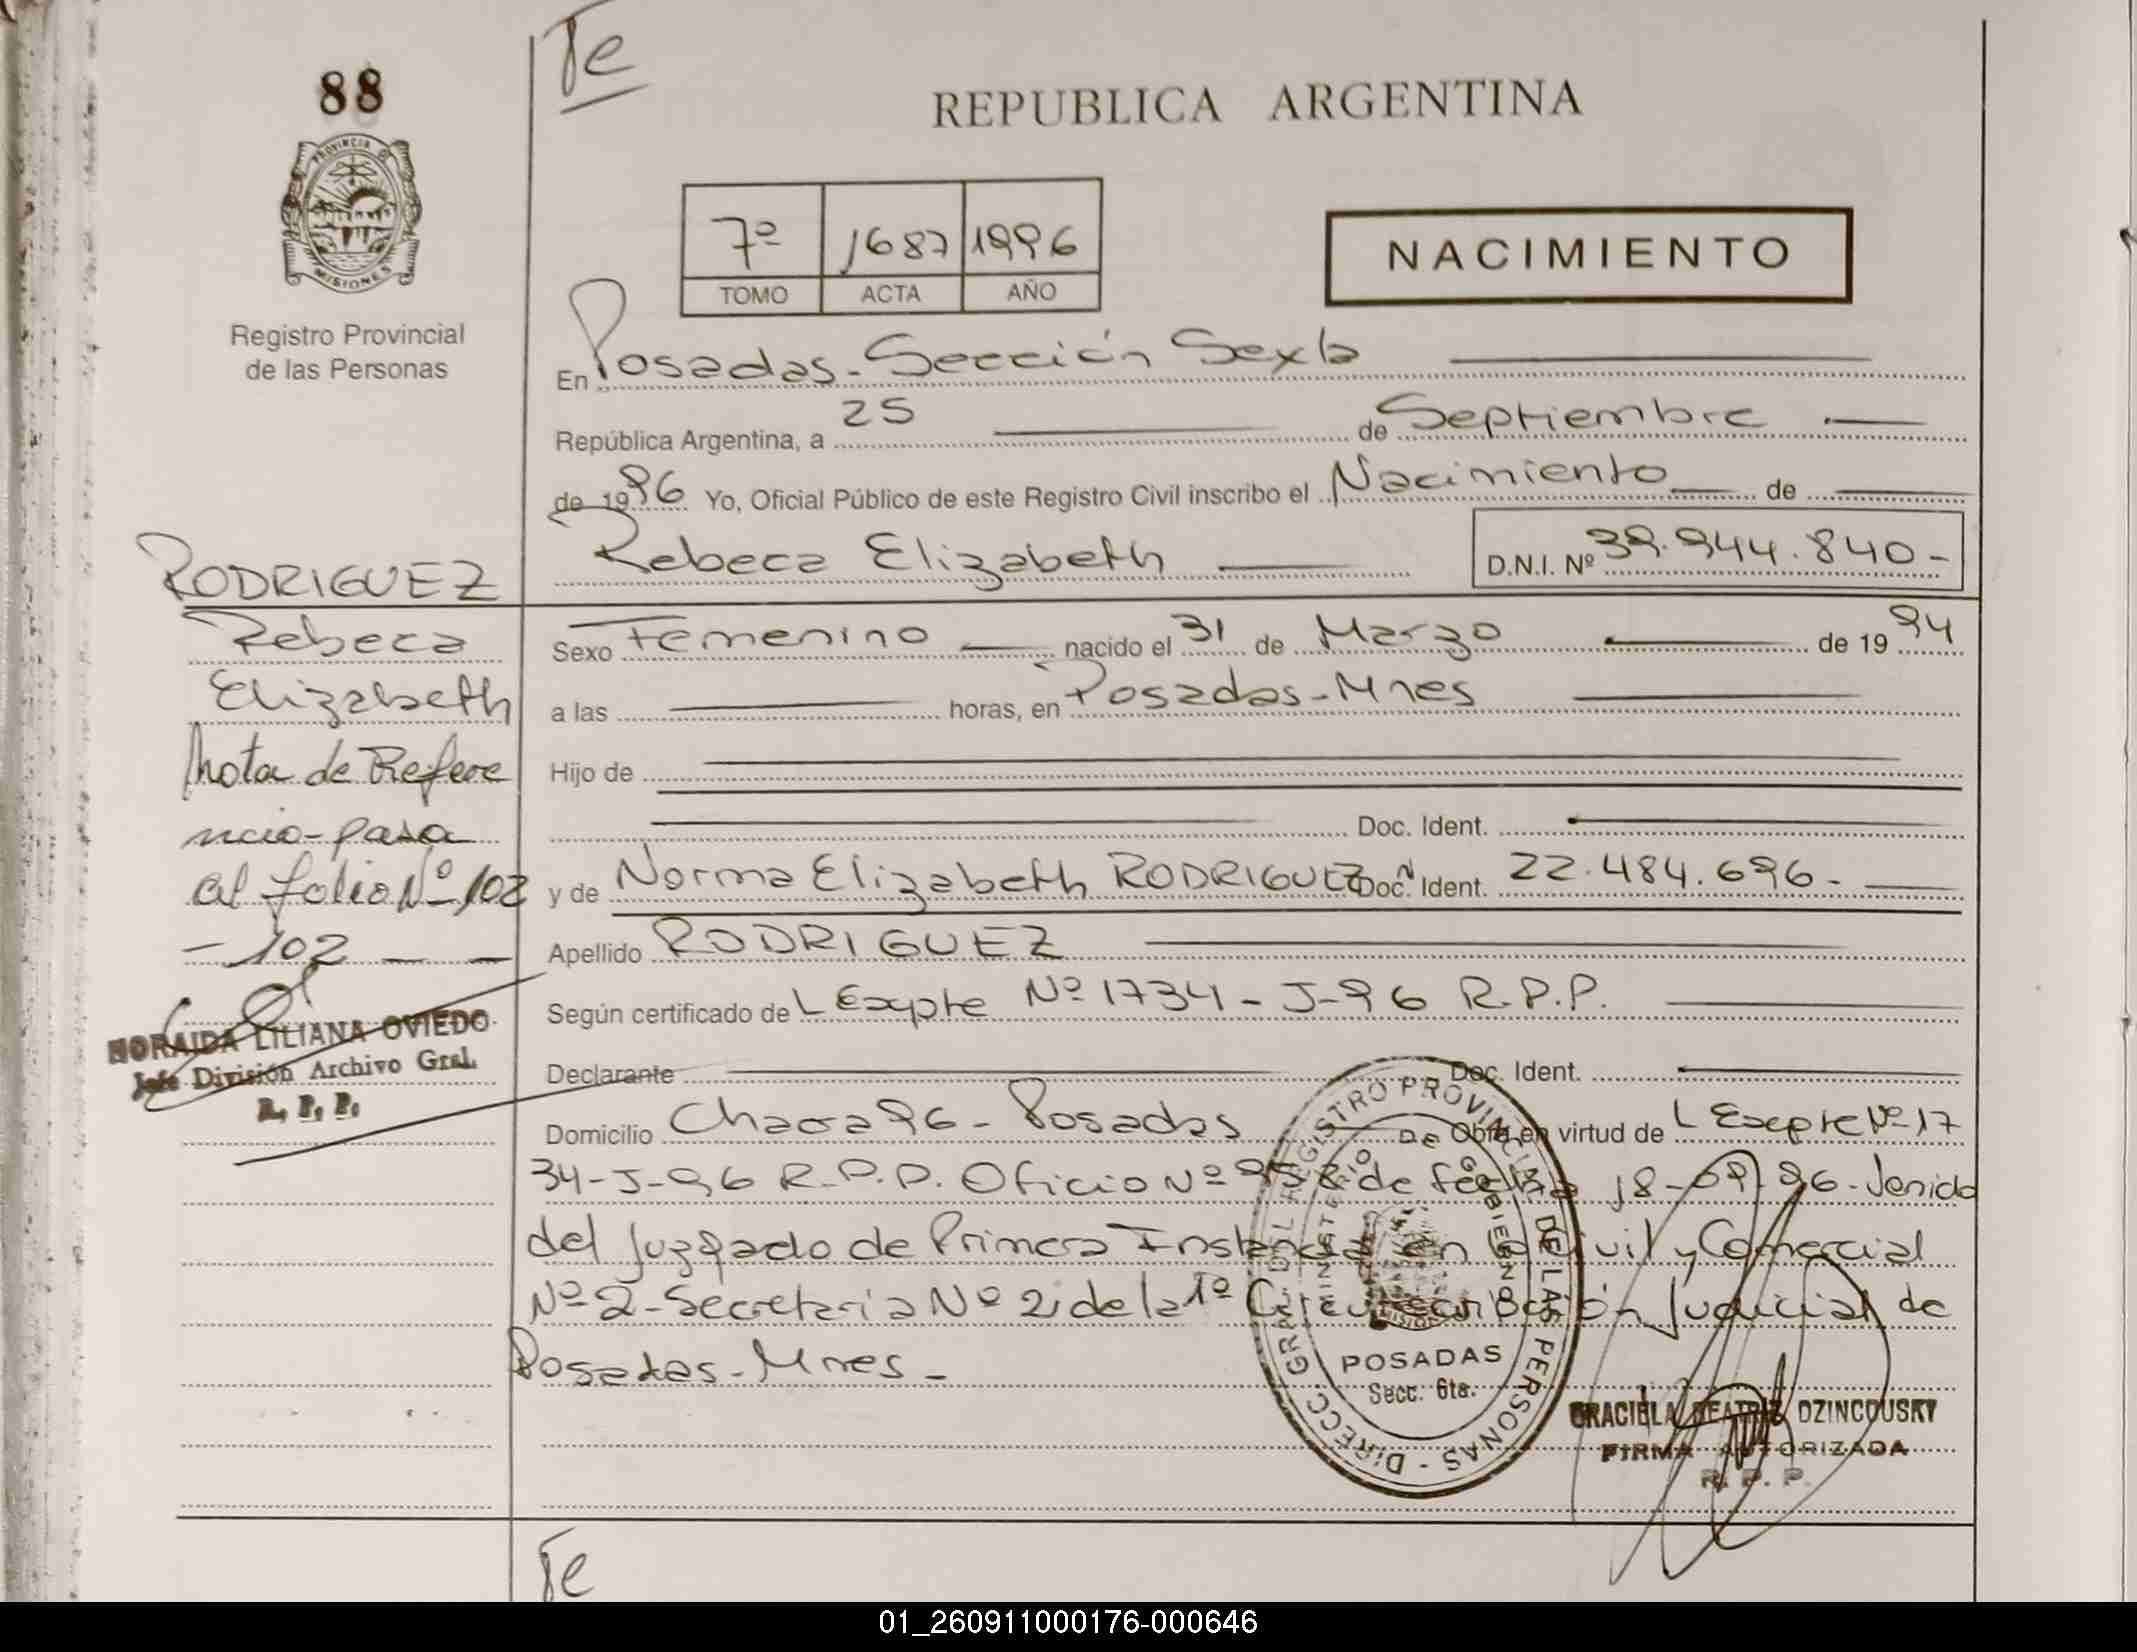 88
Te
REPUBLICA ARGENTINA
PROVINCIA DE
MISIONES
Registro Provincial
de las Personas
7º 1687 1996
TOMO ACTA AÑO
NACIMIENTO
En Posadas - Sección Sexta
República Argentina, a 25 de Septiembre
de 1996 Yo, Oficial Público de este Registro Civil inscribo el Nacimiento de
Rebeca Elizabeth D.N.I. Nº 39.944.840-
RODRIGUEZ
Rebeca
Elizabeth
Nota de Refere
ncia-pasa
al folio Nº 102
- 102 - -
NORAIDA LILIANA OVIEDO
Jefe División Archivo Gral.
R. P. P.
Sexo Femenino nacido el 31 de Marzo de 1994
a las horas, en Posadas - Mnes
Hijo de
Doc. Ident.
y de Norma Elizabeth RODRIGUEZ Doc. Ident. 22.484.696.-
Apellido RODRIGUEZ
Según certificado de L Expte Nº 1734 - J-96 R.P.P.
Declarante Doc. Ident.
Domicilio Chacra 96 - Posadas Obra en virtud de L Expte Nº 17
34-J-96 R.P.P. Oficio Nº 958 de fecha 18-09-96 - Venido
del Juzgado de Primera Instancia en lo Civil y Comercial
Nº 2 - Secretaria Nº 2 de la 1º Circunscripción Judicial de
Posadas - Mnes -
DIRECC. GRAL. DEL REGISTRO PROVINCIAL DE LAS PERSONAS
MINISTERIO DE GOBIERNO
MISIONES
POSADAS
Secc. 6ta.
GRACIELA BEATRIZ DZINCOUSKY
FIRMA AUTORIZADA
R. P. P.
Te
01_260911000176-000646